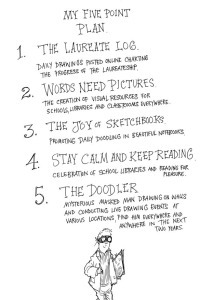 MY FIVE POINT
PLAN
1. THE LAUREATE LOG.
DAILY DRAWINGS POSTED ONLINE CHARTING
THE PROGRESS OF THE LAUREATESHIP.
2. WORDS NEED PICTURES.
THE CREATION OF VISUAL RESOURCES FOR
SCHOOLS, LIBRARIES AND CLASSROOMS EVERYWHERE.
3. THE JOY OF SKETCHBOOKS
PROMOTING DAILY DOODLING IN BEAUTIFUL NOTEBOOKS.
4. STAY CALM AND KEEP READING
CELEBRATION OF SCHOOL LIBRARIES AND READING FOR
PLEASURE.
5. THE DOODLER
MYSTERIOUS MASKED MAN DRAWING ON WALLS
AND CONDUCTING LIVE DRAWING EVENTS AT
VARIOUS LOCATIONS, FIND HIM EVERYWHERE AND
ANYWHERE IN THE NEXT
TWO YEARS.